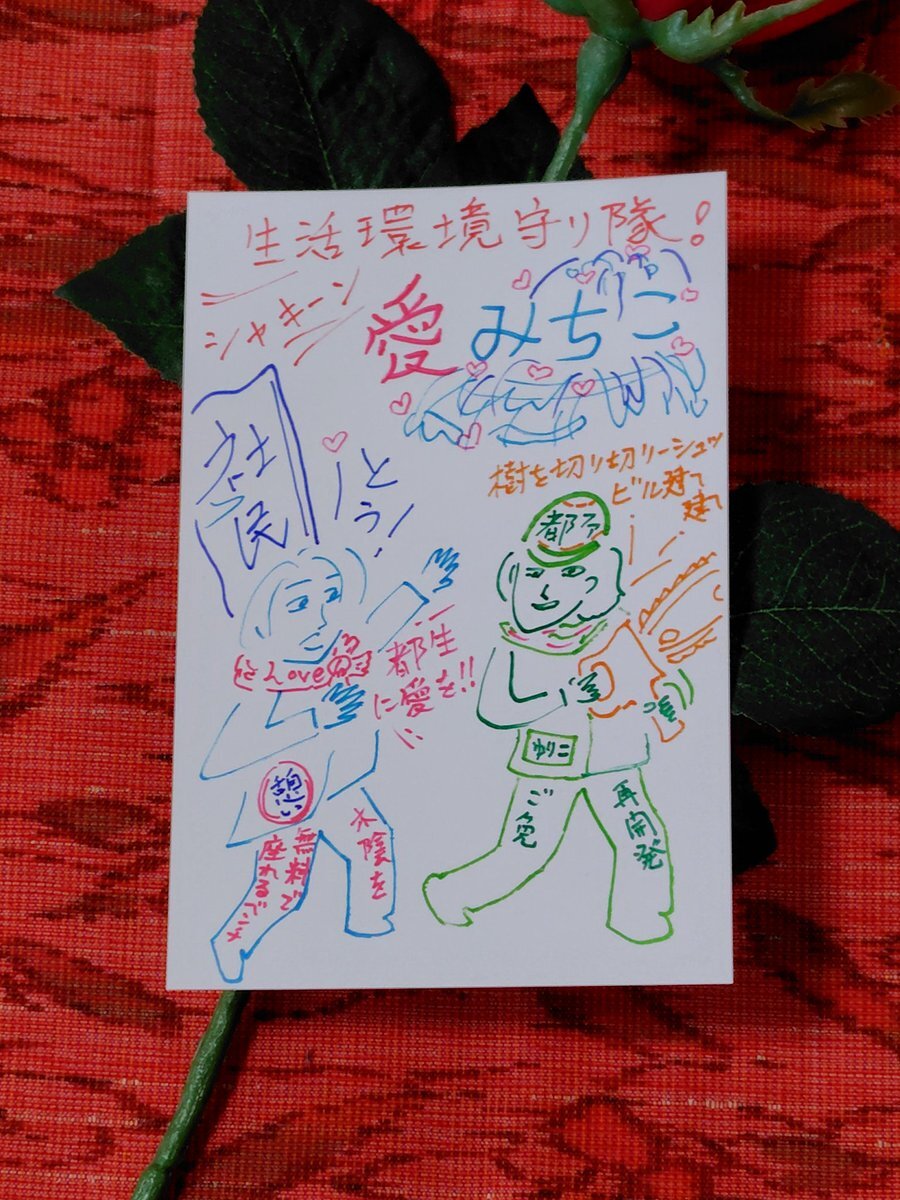 生活環境守り隊!
シャキーン
愛みちこ
社民
とう!
樹を切り切りーシュッ
ビル建て
建て
都ファ
Love
都生
に愛を!!
ゆりこ
憩い
木陰を
無料で
座れるベンチ
ご免
再開発